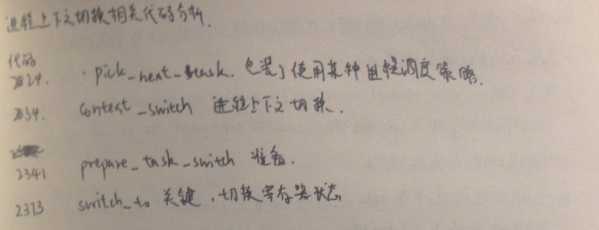 进程上下文切换相关代码分析.
代码
2829. · pick_next_task. 包装了使用某种进程调度策略.
2834. context_switch 进程上下文切换.
2341 prepare_task_switch 准备.
2373 switch_to 关键,切换寄存器状态